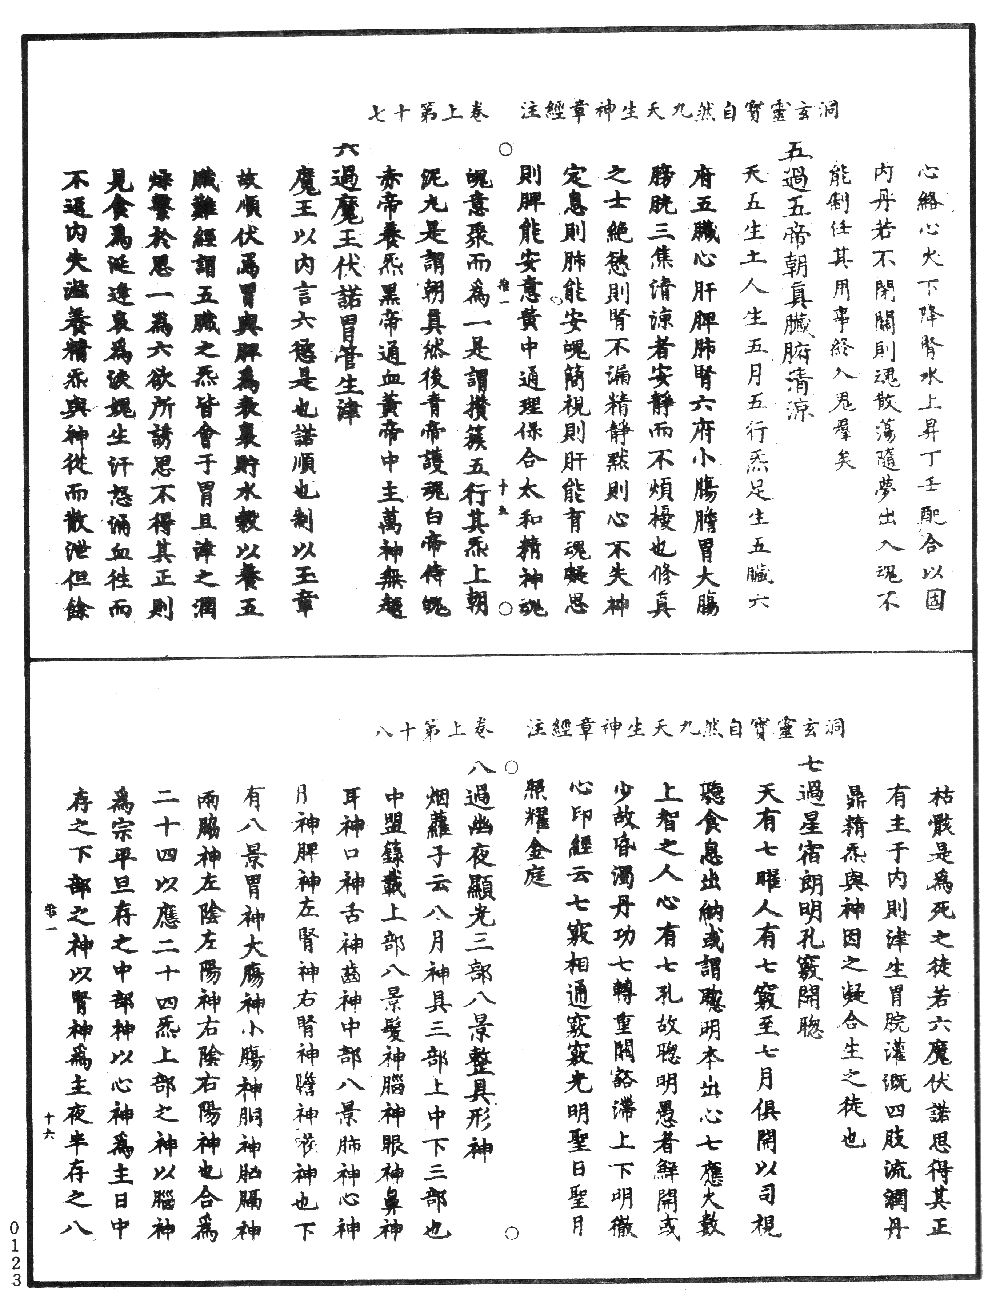 洞玄靈寶自然九天生神章經註　卷上第十七
心絡心火下降腎水上昇丁壬配合以固
內丹若不閉關則魂散蕩隨夢出入魂不
能制任其用事終入鬼羣矣
五過五帝朝真臟腑清凉
天五生土人生五月五行炁足生五臟六
府五臟心肝脾肺腎六府小腸膽胃大腸
膀胱三焦清凉者安靜而不煩擾也修真
之士絕慾則腎不漏精靜默則心不失神
定息則肺能安魄簡視則肝能育魂凝思
則脾能安意黄中通理保合太和精神魂
魄意聚而為一是謂攢簇五行其炁上朝
泥丸是謂朝真然後青帝護魂白帝侍魄
赤帝養炁黑帝通血黄帝中主萬神無越
六過魔王伏諾胃管生津
魔王以內言六慾是也諾順也制以王章
故順伏焉胃與脾為表裏貯水穀以養五
臟難經謂五臟之炁皆會于胃且津之潤
燥繫於思一為六欲所誘思不得其正則
見食為涎逢哀為淚媿生汗怒涌血徃而
不返內失滋養精炁與神從而散泄但餘
洞玄靈寶自然九天生神章經註　卷上第十八
枯骸是為死之徒若六魔伏諾思得其正
有主于內則津生胃脘灌溉四肢流潤丹
鼎精炁與神因之凝合生之徒也
七過星宿朗明孔竅開聦
天有七曜人有七竅至七月俱開以司視
聽食息出納或謂聦明本出心七應大數
上智之人心有七孔故聦明愚者鮮開或
少故昏濁丹功七轉重開豁滯上下明徹
心印經云七竅相通竅竅光明聖日聖月
照耀金庭
八過幽夜顯光三部八景整具形神
烟蘿子云八月神具三部上中下三部也
中盟籙載上部八景髮神腦神眼神鼻神
耳神口神舌神齒神中部八景肺神心神
肝神脾神左腎神右腎神膽神喉神也下
有八景胃神大腸神小腸神胴神胷膈神
兩脇神左陰左陽神右陰右陽神也合為
二十四以應二十四炁上部之神以腦神
為宗平旦存之中部神以心神為主日中
存之下部之神以腎神為主夜半存之八
十五
十六
0123